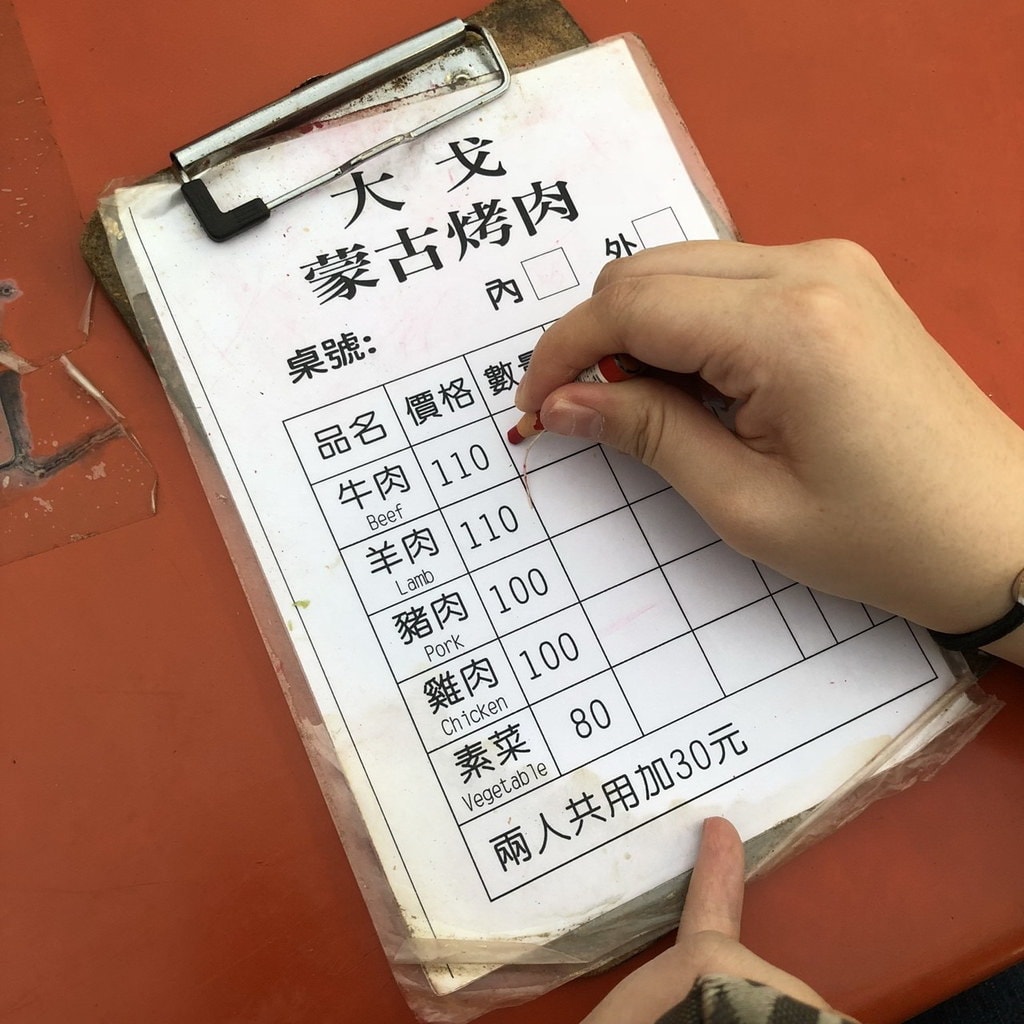 大戈
蒙古烤肉
內 外
桌號:
品名 價格 數
牛肉 110
Beef
羊肉 110
Lamb
豬肉 100
Pork
雞肉 100
Chicken
素菜 80
Vegetable
兩人共用加30元